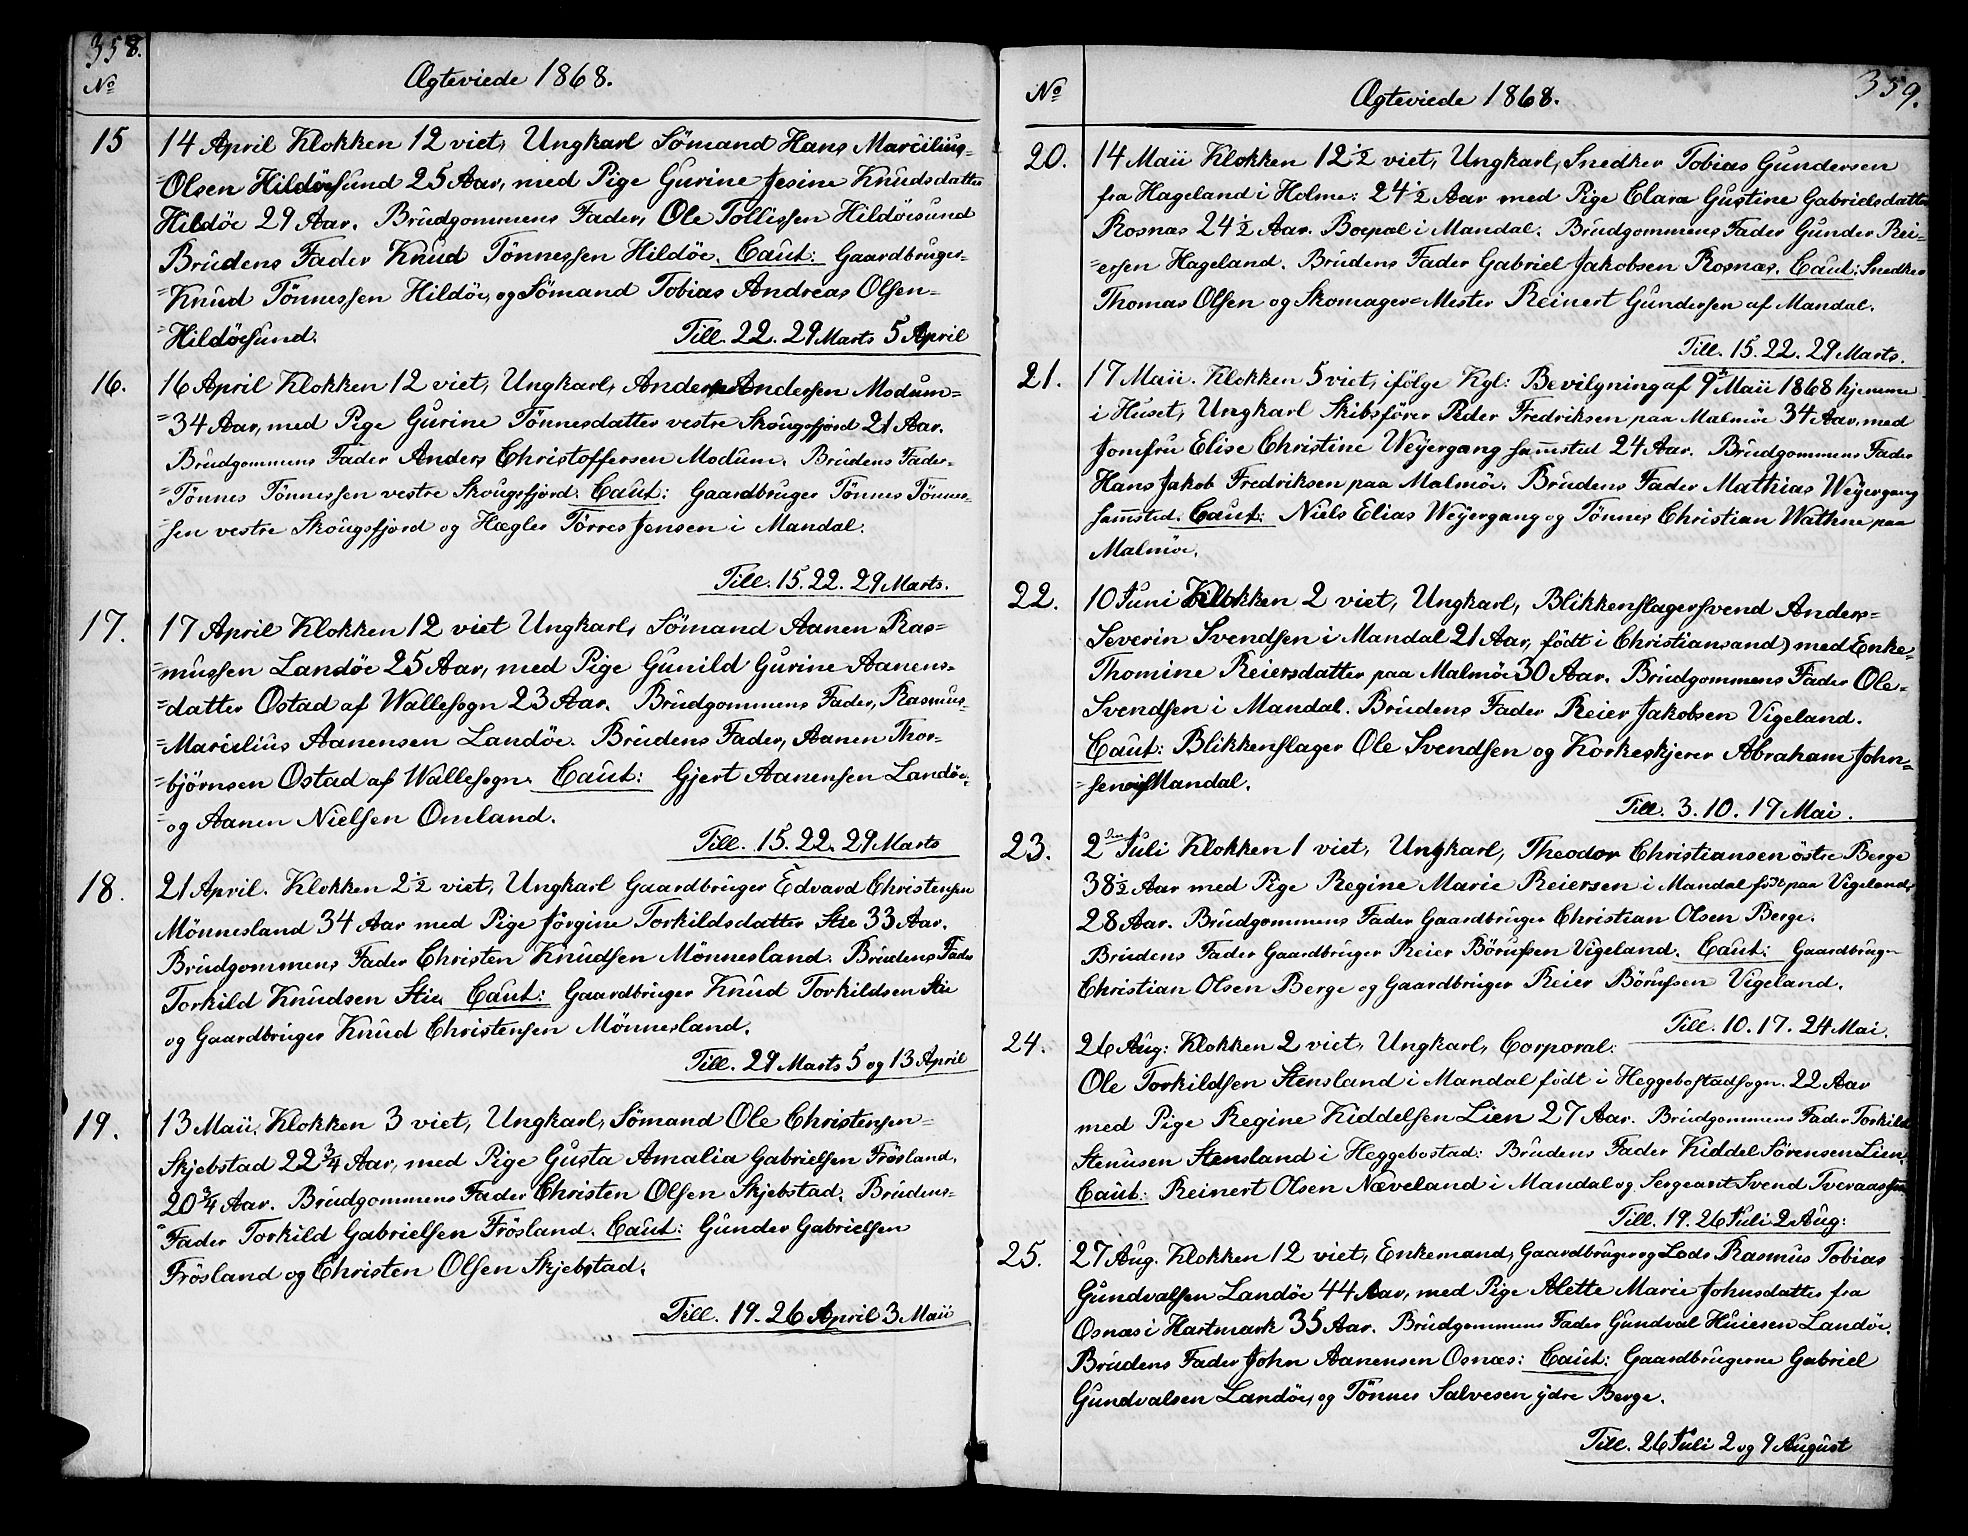 358.
No
Ægteviede 1868.
15
14 April Klokken 12 viet, Ungkarl Sömand Hans Marcilius=
=Olsen Hildöesund 25 Aar, med Pige Gurine Jesine Knudsdatter
Hildöe 29 Aar. Brudgommens Fader, Ole Tollissen Hildöesund
Brudens Fader Knud Tönnessen Hildöe. Caut: Gaardbruger=
=Knud Tönnessen Hildöe, og Sömand Tobias Andreas Olsen=
=Hildöesund. Till. 22. 29 Marts 5 April
16.
16 April Klokken 12 viet, Ungkarl, Anders Andersen Modum=
=34 Aar, med Pige Gurine Tönnesdatter vestre Skougsfjord 21 Aar.
Brudgommens Fader Anders Christoffersen Modum. Brudens Fader=
=Tönnes Tönnessen vestre Skougsfjord. Caut: Gaardbruger Tönnes Tönnes=
=sen vestre Skougsfjord og Hægler Törres Jensen i Mandal.
Till. 15. 22. 29 Marts.
17.
17 April Klokken 12 viet Ungkarl, Sömand Aanen Ras=
=mussen Landöe 25 Aar, med Pige Gunild Gurine Aanens=
=datter Ostad af Wallesogn 23 Aar. Brudgommens Fader, Rasmus=
=Marcilius Aanensen Landöe. Brudens Fader, Aanen Thor=
=björnsen Ostad af Wallesogn. Caut: Gjert Aanensen Landöe,
=og Aanen Nielsen Omland.
Till. 15. 22. 29 Marts
18.
21 April. Klokken 2½ viet, Ungkarl Gaardbruger Edvard Christensen
Mönnesland 34 Aar med Pige Jörgine Torkildsdatter Stie 33 Aar.
Brudgommens Fader Christen Knudsen Mönnesland. Brudens Fader
Torkild Knudsen Stie. Caut: Gaardbruger Knud Torkildsen Stie
og Gaardbruger Knud Christensen Mönnesland.
Till. 29 Marts 5 og 13 April
19.
13 Maii. Klokken 3 viet, Ungkarl, Sömand Ole Christensen=
Skjebstad 22¾ Aar, med Pige Gusta Amalia Gabrielsen Frösland,
20¾ Aar. Brudgommens Fader Christen Olsen Skjebstad. Brudens=
=Fader Torkild Gabrielsen Frösland. Caut: Gunder Gabrielsen
Frösland og Christen Olsen Skjebstad.
Till. 19. 26 April 3 Maii
No
Ægteviede 1868.
359.
20.
14 Maii Klokken 12½ viet, Ungkarl, Snedker Tobias Gundersen
fra Hageland i Holme: 24½ Aar med Pige Clara Gustine Gabrielsdatter
Rosnæs 24½ Aar. Boepæl i Mandal. Brudgommens Fader Gunder Rei=
=ersen Hageland. Brudens Fader Gabriel Jakobsen Rosnæs. Caut: Snedker
Thomas Olsen og Skomager=Mester Reinert Gundersen af Mandal.
Till. 15. 22. 29 Marts.
21.
17 Maii. Klokken 5 viet, ifölge Kgl: Bevilgning af 9 Maii 1868 hjemme
i Huset, Ungkarl Skibsförer Peder Fredriksen paa Malmöe 34 Aar, med
Jomfru Elise Christine Weyergang sammsted 24 Aar. Brudgommens Fader
Hans Jakob Fredriksen paa Malmöe. Brudens Fader Mathias Weyergang
sammsted. Caut: Niels Elias Weyergang og Tönnes Christian Wathne paa
Malmöe.
22.
10 Juni Klokken 2 viet, Ungkarl, Blikkenslagersvend Anders=
Severin Svendsen i Mandal 21 Aar, födt i Christiansand) med Enke=
Thomine Reiersdatter paa Malmöe 30 Aar. Brudgommens Fader Ole=
Svendsen i Mandal. Brudens Fader Reier Jakobsen Vigeland.
Caut: Blikkenslager Ole Svendsen og Korkeskjerer Abraham John=
=sen Mandal.
Till. 3. 10. 17 Mai.
23.
2den Juli Klokken 1 viet, Ungkarl, Theodor Christiansen östre Berge
38½ Aar med Pige Regine Marie Reiersen i Mandal födt paa Vigeland,
28 Aar. Brudgommens Fader Gaardbruger Christian Olsen Berge.
Brudens Fader Gaardbruger Reier Börufsen Vigeland. Caut: Gaardbruger
Christian Olsen Berge og Gaardbruger Reier Börufsen Vigeland.
Till. 10. 17. 24 Mai.
24.
26 Aug: Klokken 2 viet, Ungkarl, Corporal:
Ole Torkildsen Stensland i Mandal födt i Heggebostadsogn. 22 Aar
med Pige Regine Kiddelsen Lien 27 Aar. Brudgommens Fader Torkild
Stenusen Stensland i Heggebostad: Brudens Fader Kiddel Sörensen Lien.
Caut: Reinert Olsen Næveland i Mandal og Sergeant Svend
Till. 19. 26 Juli 2 Aug:
25.
27 Aug. Klokken 12 viet, Enkemand, Gaardbruger og Lods Rasmus Tobias
Gundvalsen Landöe 44 Aar, med Pige Alette Marie Johnsdatter fra
Osnæs i Hartmark 35 Aar. Brudgommens Fader Gundval Huiesen Landöe.
Brudens Fader John Aanensen Osnæs: Caut: Gaardbrugerne Gabriel
Gundvalsen Landöe, og Tönnes Salvesen ydre Berge.
Till. 26 Juli 2 og 9 August